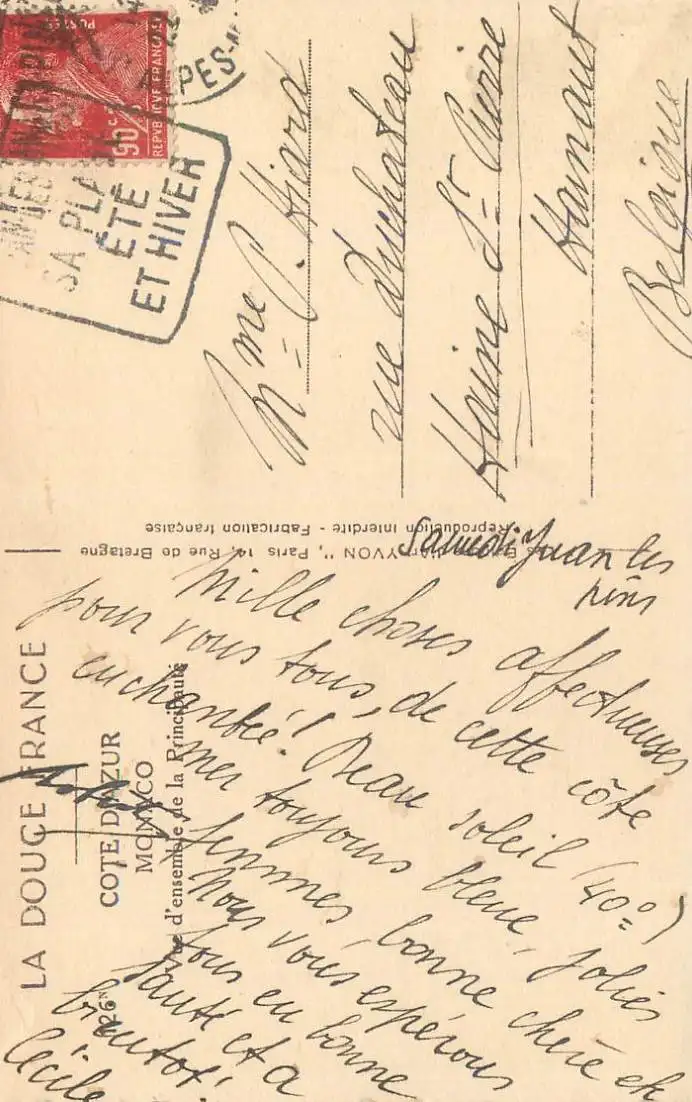 LA DOUCE FRANCE
COTE D'AZUR
MONACO
Vue d'ensemble de la Principauté
Samedi Juan les
pins
Mille choses affectueuses
pour vous tous, de cette côte
enchantée! Beau soleil (40°)
mer toujours bleue, jolies
femmes, bonne chère et
Nous vous espérons
tous en bonne
santé et à
bientôt!
Cécile
"YVON", Paris 14, Rue de Bretagne
Reproduction interdite - Fabrication française
POSTES
90c
REPUBLIQUE FRANCAISE
SA PLAGE
ÉTÉ
ET HIVER
Mme C. Hiard
rue Duchateau
Haine St Pierre
Hainaut
Belgique